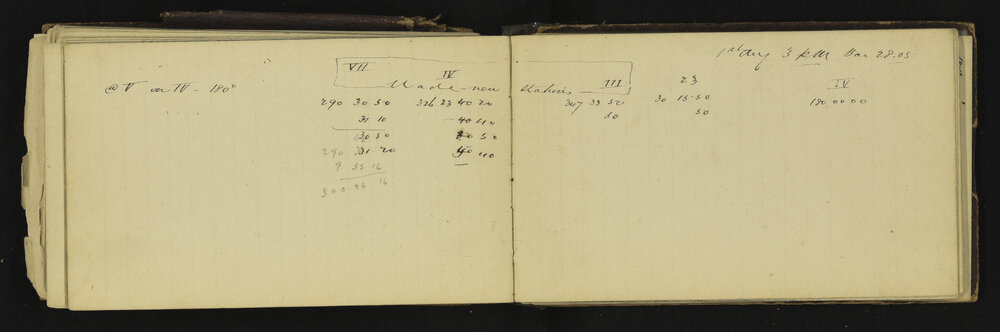 1st Aug 3 P.M. Bar 28.05
VII IV III 23 IV
@ V on IV - 180° Made new Stations
290 30 50 326 23 40 20 347 33 50 30 15 50 180 00 00
31 10 40 40 50 50
30 50 50
290 31 20 40
9 55 16
300 26 16